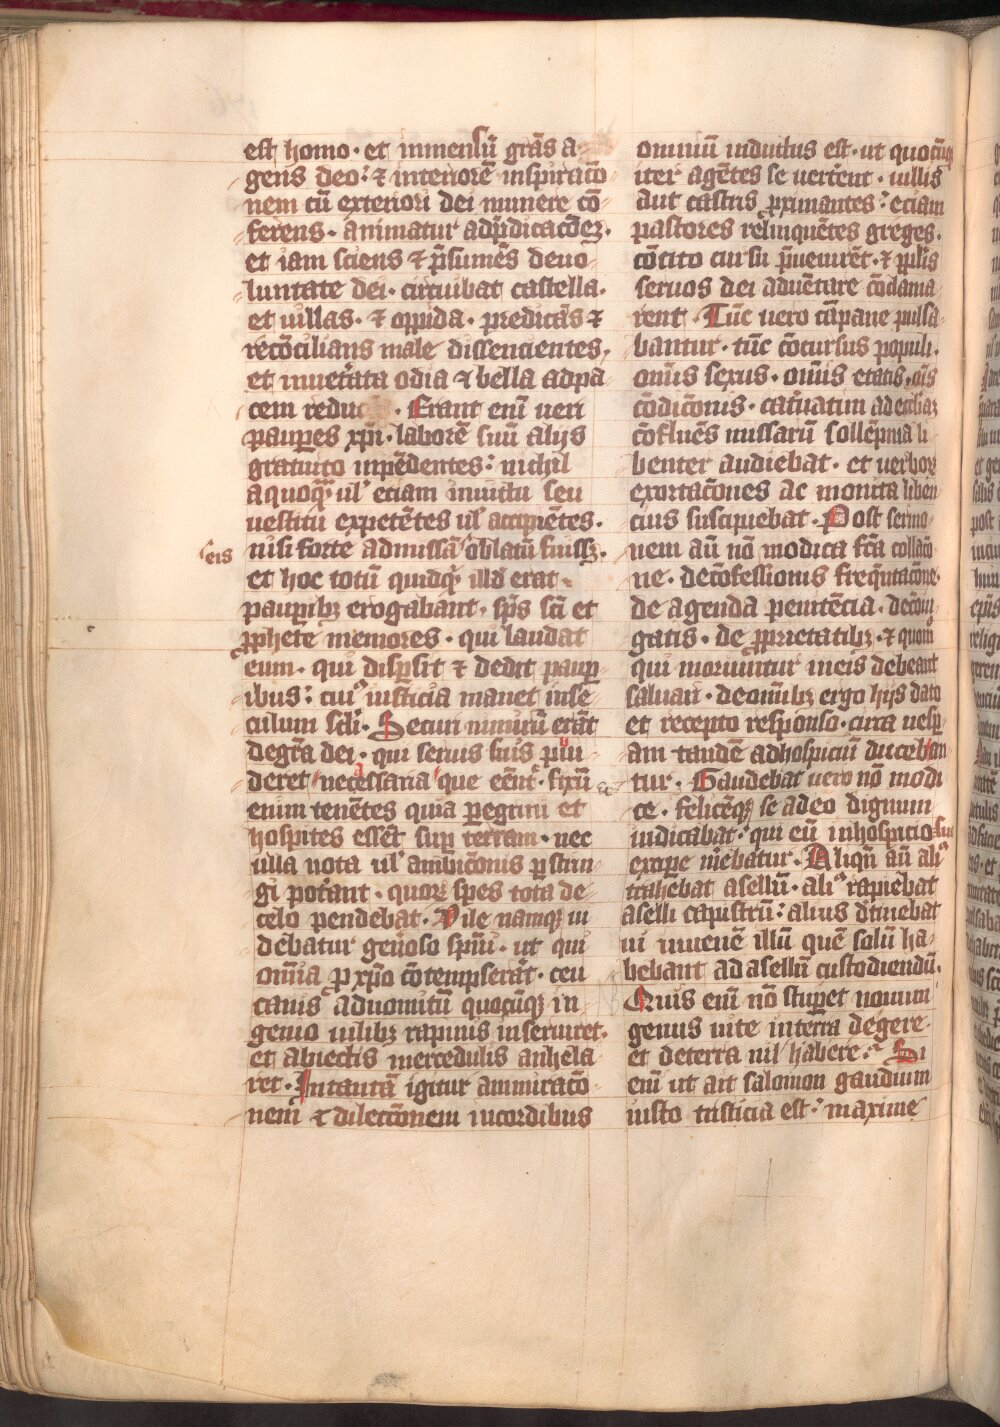 est homo · et inmensū grās a
gens deo : ⁊ interiorē inspiratō
nem cū exteriori dei munere cō
ferens · animatur adp̄dicac̄oeꝫ ·
et iam sciens ⁊ p̄sumēs de uo
luntate dei · circuibat castella ·
et uillas · ⁊ oppida · predicās ⁊
recōcilians male dissencientes,
et inueterata odia ⁊ bella ad pa
cem reducēs · Erant eni ueri
pauꝑes xp̄i · laborē suū alijs
gratuito inpēdentes : nichil
a quoqᷓ ul' eciam inuitu seu
uestitu expetētes ul' accipiētes ·
nisi forte admissā oblatū fuissꝫ ·
eis
et hoc totū quidqͥd illd erat ·
pauꝑibꝫ erogabant · sp̄s sc̄i et
ꝓphete memores · qui laudat
eum · qui disꝑsit ⁊ dedit pauꝑ
ibus : cuiꝰ iusticia manet inse
culum scli · Securi nimirū erāt
de gr̄a dei · qui seruis suis ꝓui
deret necessaria que eēnt · fixū
enim tenētes quia ꝑegrini et
hospites essēt suꝑ terram · nec
ulla nota ul' ambic̄onis ꝑstrin
gi potāant · quoꝝ spes tota de
celo pendebat · Vile namqꝫ ui
debatur gen̄oso spūi · ut qui
om̄ia ꝓ xp̄o cōtempserāt · ceu
canis ad uomitū quocūqꝫ in
genio uilibꝫ rapinis inseruiret ·
et abiectis mercedulis anhela
ret · Intantā igitur ammiratō
nem ⁊ dilectōnem incordibus
omniū inductus est · ut quocūqꝫ
iter agētes se uerterent · uillis
aut castris ꝓximantes : eciam
pastores relinquētes greges ·
cōcito cursu p̄uenirēt · ⁊ pplis
seruos dei aduētare cōclama
rent · Tūc uero cāpane pulsa
bantur · tūc cōcursus populi ·
om̄is sexus · om̄is etatis · ois
cōdic̄onis · cateruatim ad ecclīaꝫ
cōfluēs missarū sollēpnia li
benter audiebat · et uerboꝝ
exortac̄ones ac monita liben
cius suscipiebat · Post sermo
nem aū nō modica fc̄a collacō
ne · de cōfessionis freq̄ntacōne ·
de agenda penitēcia · de cōiu
gatis · de ꝓprietatibꝫ · ⁊ quom̄
qui moriuntur in eis debeant
saluari · de om̄ibꝫ ergo hijs dato
et recepto responso · circa uesꝑ
am tandē ad hospiciū duceban
tur · Gaudebat uero nō modi
ce · felicēqꝫ se adeo dignum
iudicabat : qui eū in hospicio suo
exciꝑe m̄ebatur · Aliqn̄ aū aliꝰ
trahebat asellū · aliꝰ rapiebat
aselli capistrū : alius d̄tinebat
ui iuuenē illū quē solū ha
bebant ad asellū custodiendū ·
Quis eni nō stupet nouum
genus uite in terra degere ·
et de terra nil habere · Si
eni ut ait salomon gaudium
iusto iusticia est : maxime